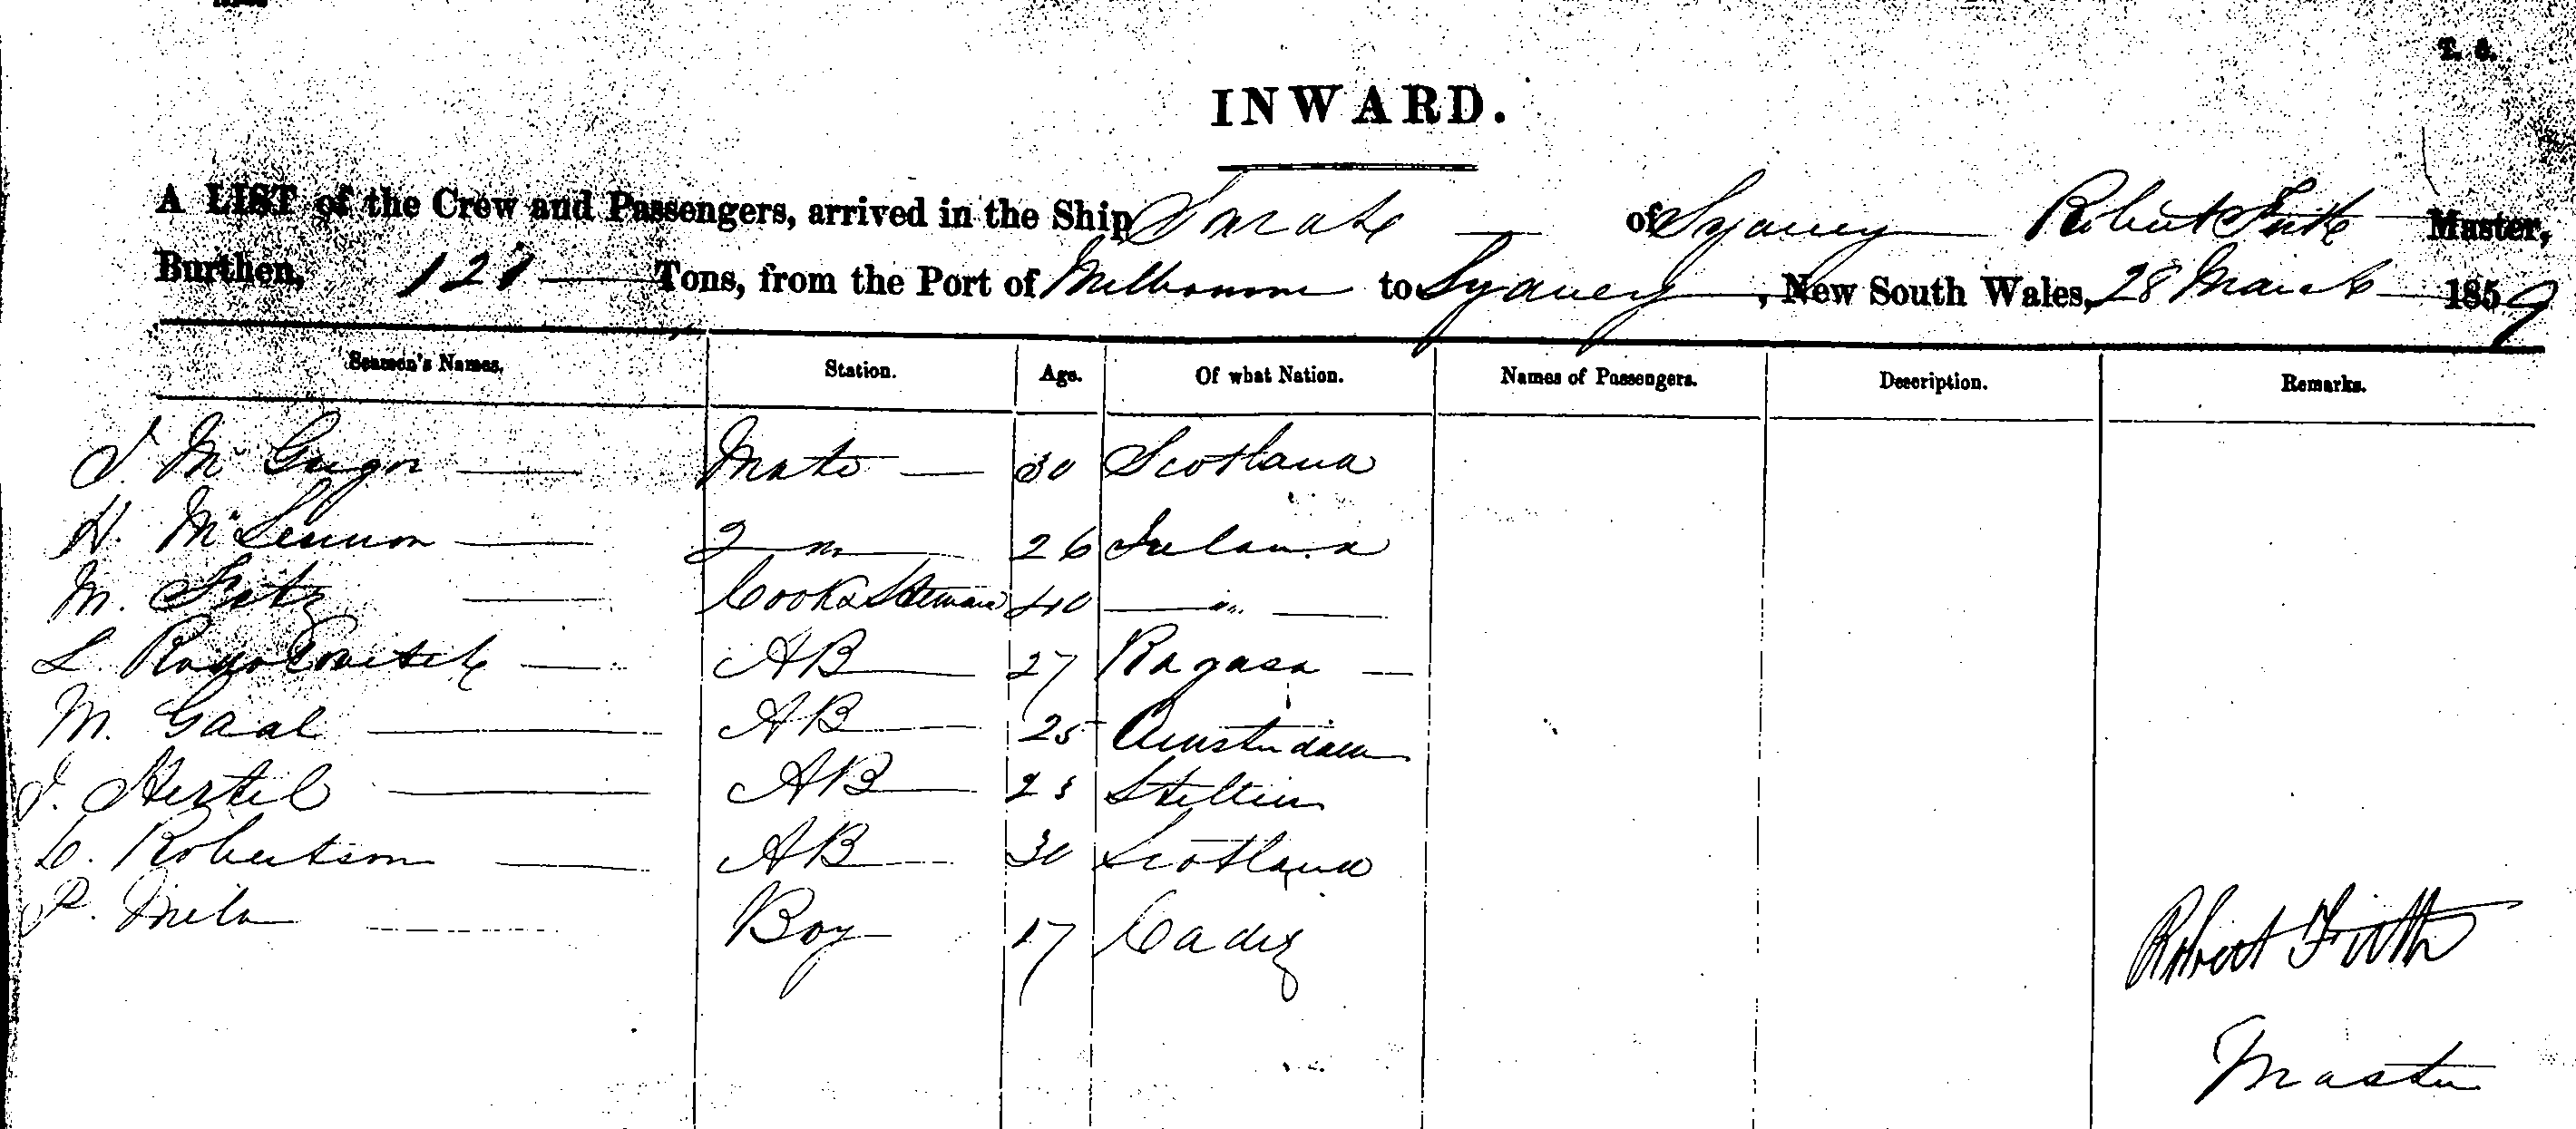 INWARD.
A LIST of the Crew and Passengers, arrived in the Ship Sarah of Sydney Robert Firth Master,
Burthen, 121 Tons, from the Port of Melbourne to Sydney, New South Wales, 28 March 1859
Seamen's Names. Station. Age. Of what Nation. Names of Passengers. Description. Remarks.
J. McGregor Mate 30 Scotland
H. McLennon 2 m 26 Ireland
M. Fitz Cook & Steward 40 "
L. AB 27 Ragusa
M. Gaal AB 25 Amsterdam
J. Hertel AB 23 Stettin
C. Robertson AB 30 Scotland
P. Boy 17 Cadiz
Robert Firth
Master